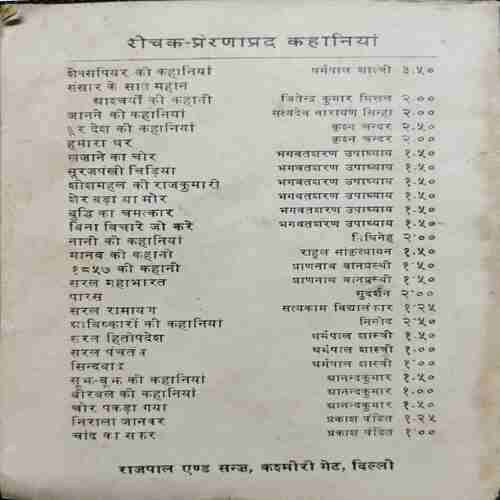 रोचक-प्रेरणाप्रद कहानियां
शेक्सपियर की कहानियां धर्मपाल शास्त्री ३.५०
संसार के सात महान
आश्चर्यों की कहानी जितेन्द्र कुमार मित्तल २.००
जानने की कहानियां सत्यदेव नारायण सिन्हा २.००
हर देश की कहानियां कृश्न चन्दर २.५०
हमारा घर कृश्न चन्दर २.००
खजाने का चोर भगवतशरण उपाध्याय १.५०
सूरजपंखी चिड़िया भगवतशरण उपाध्याय १.५०
शीशमहल की राजकुमारी भगवतशरण उपाध्याय १.५०
शेर बड़ा या मोर भगवतशरण उपाध्याय १.५०
बुद्धि का चमत्कार भगवतशरण उपाध्याय १.५०
बिना विचारे जो करे भगवतशरण उपाध्याय १.५०
नानी की कहानियां २.००
मानव की कहानी राहुल सांकृत्यायन १.५०
१८५७ की कहानी प्राणनाथ वानप्रस्थी १.५०
सरल महाभारत प्राणनाथ वानप्रस्थी १.५०
पारस सुदर्शन २.००
सरल रामायण सत्यकाम विद्यालंकार १.२५
आविष्कारों की कहानियां विनोद २.५०
सरल हितोपदेश धर्मपाल शास्त्री १.५०
सरल पंचतंत्र धर्मपाल शास्त्री १.००
सिन्दबाद धर्मपाल शास्त्री १.००
सूझ-बूझ की कहानियां आनन्दकुमार १.५०
बीरबल की कहानियां आनन्दकुमार १.००
चोर पकड़ा गया आनन्दकुमार १.५०
निराला जानवर प्रकाश पंडित १.२५
चांद का सफर प्रकाश पंडित १.००
राजपाल एण्ड सन्ज़, कश्मीरी गेट, दिल्ली